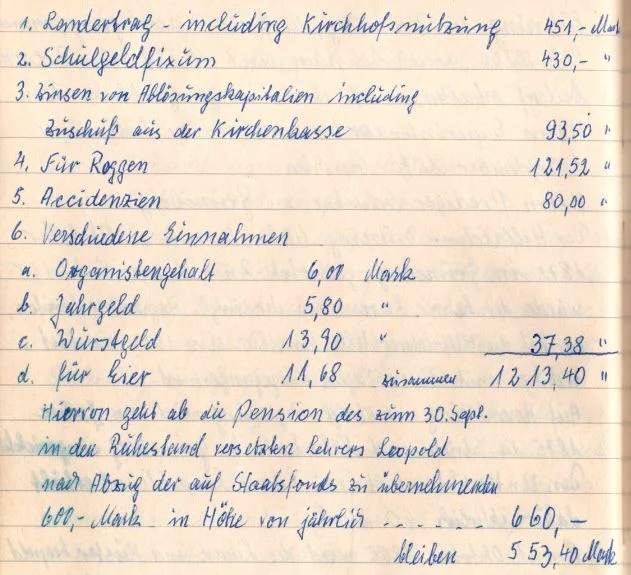 1. Landertrag - including Kirchhofsnützung 451,- Mark
2. Schulgeldfixum 430,- "
3. Zinsen von Ablösungskapitalien including
Zuschuß aus der Kirchenkasse 93,50 "
4. Für Roggen 121,52 "
5. Accidenzien 80,00 "
6. Verschiedene Einnahmen
a. Organistengehalt 6,00 Mark
b. Jahrgeld 5,80 "
c. Würstgeld 13,90 " 37,38 "
d. für Eier 11,68 zusammen 1213,40 "
Hiervon geht ab die Pension des zum 30. Sept.
in den Ruhestand versetzten Lehrers Leopold
nach Abzug der auf Staatsfonds zu übernehmenden
600,- Mark in Höhe von jährlich .... 660,-
bleiben 553,40 Mark